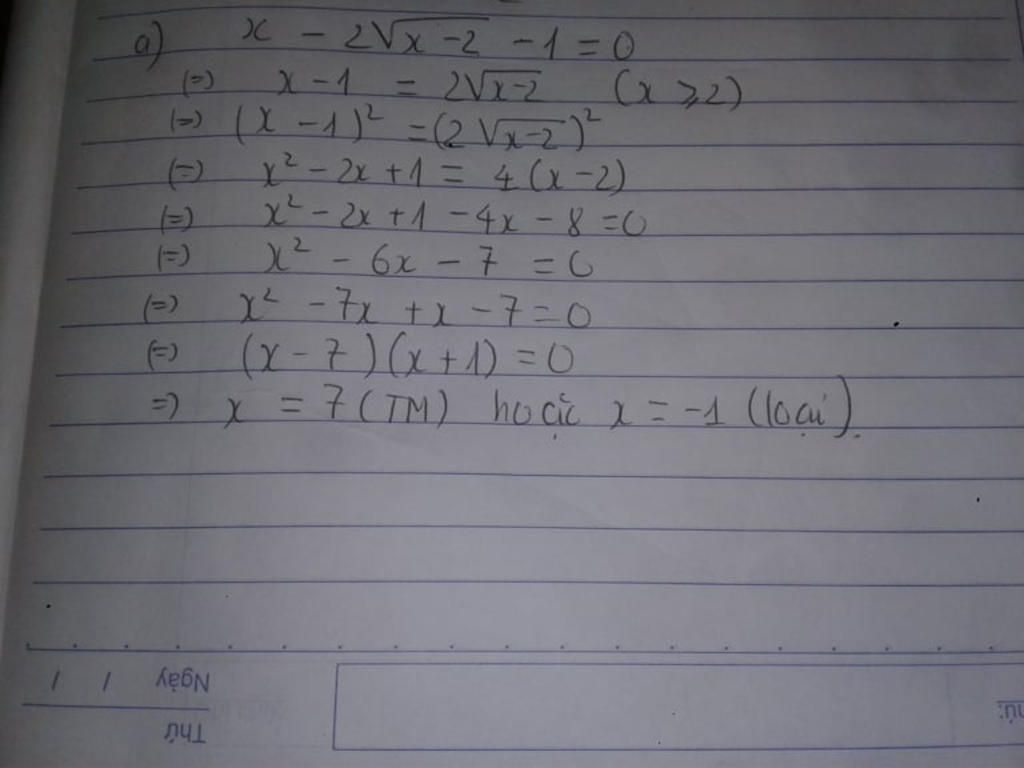 a) x - 2√(x-2) - 1 = 0
(=) x - 1 = 2√(x-2) (x ≥ 2)
(=) (x - 1)² = (2√(x-2))²
(=) x² - 2x + 1 = 4(x - 2)
(=) x² - 2x + 1 - 4x - 8 = 0
(=) x² - 6x - 7 = 0
(=) x² - 7x + x - 7 = 0
(=) (x - 7)(x + 1) = 0
=) x = 7 (TM) hoặc x = -1 (loại).
Ngày / /
Thứ